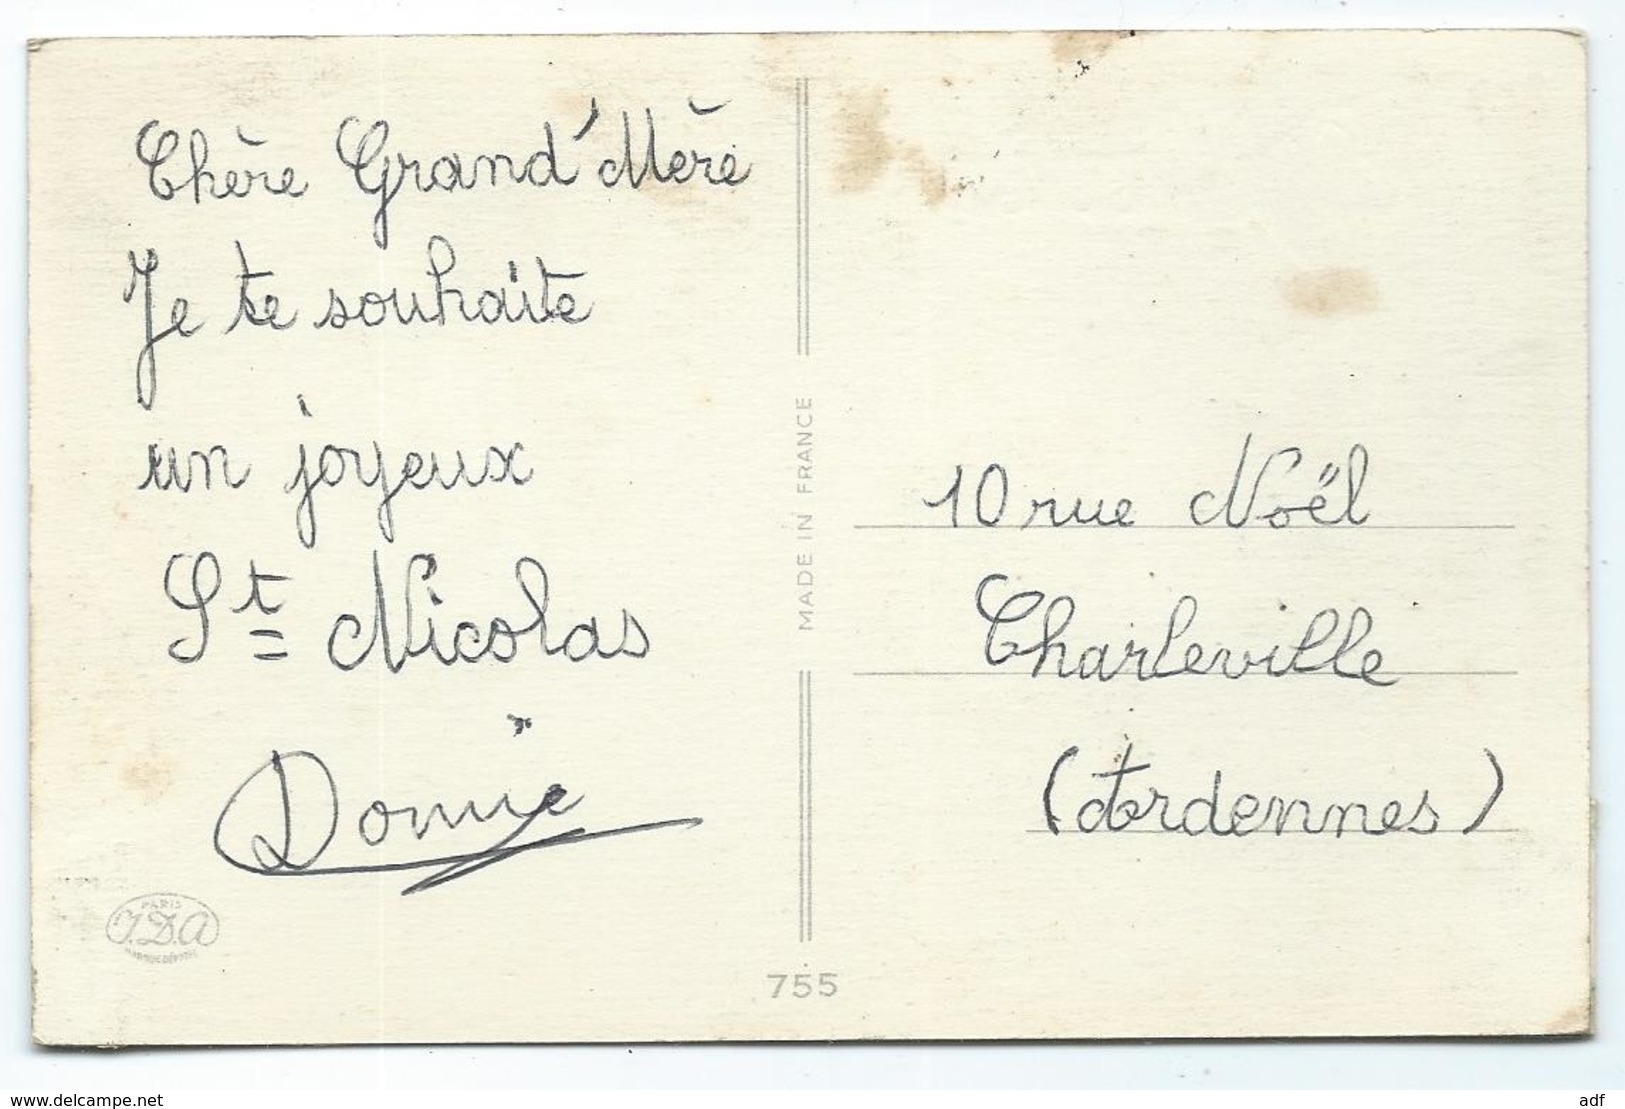 Chère Grand'Mère
Je te souhaite
un joyeux
St Nicolas
Domie
10 rue Noël
Charleville
(Ardennes)
MADE IN FRANCE
PARIS
J.D.A
755
www.delcampe.net
adf